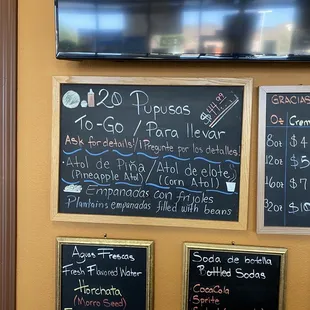 20 Pupusas
$44.99
To-Go / Para llevar
Ask for details!/¡Pregunte por los detalles!
Atol de Piña / Atol de elote
(Pineapple Atol) (Corn Atol)
Empanadas con frijoles
Plantains empanadas filled with beans
GRACIAS
Oz Crem
8oz $4
12oz $5
16oz $7
32oz $10
Aguas Frescas
Fresh Flavored Water
Horchata
(Morro Seed)
Soda de botella
Bottled Sodas
CocaCola
Sprite